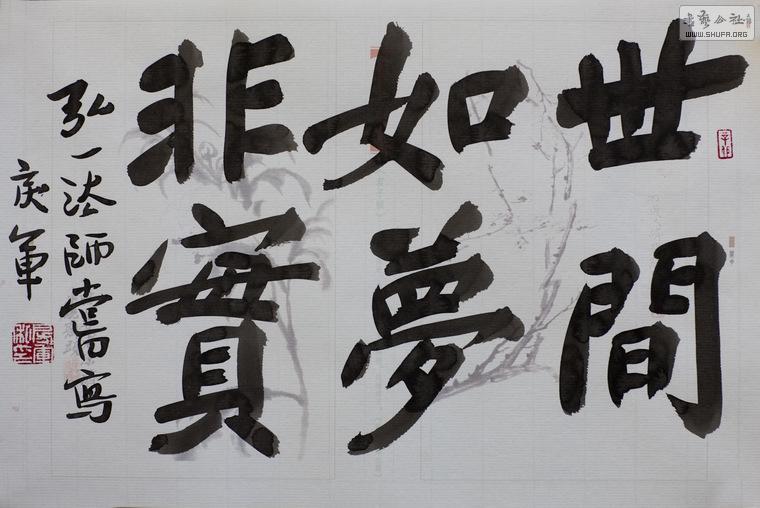 世間
如夢
非實
弘一法師嘗寫
庆軍
書艺公社
WWW.SHUFA.ORG